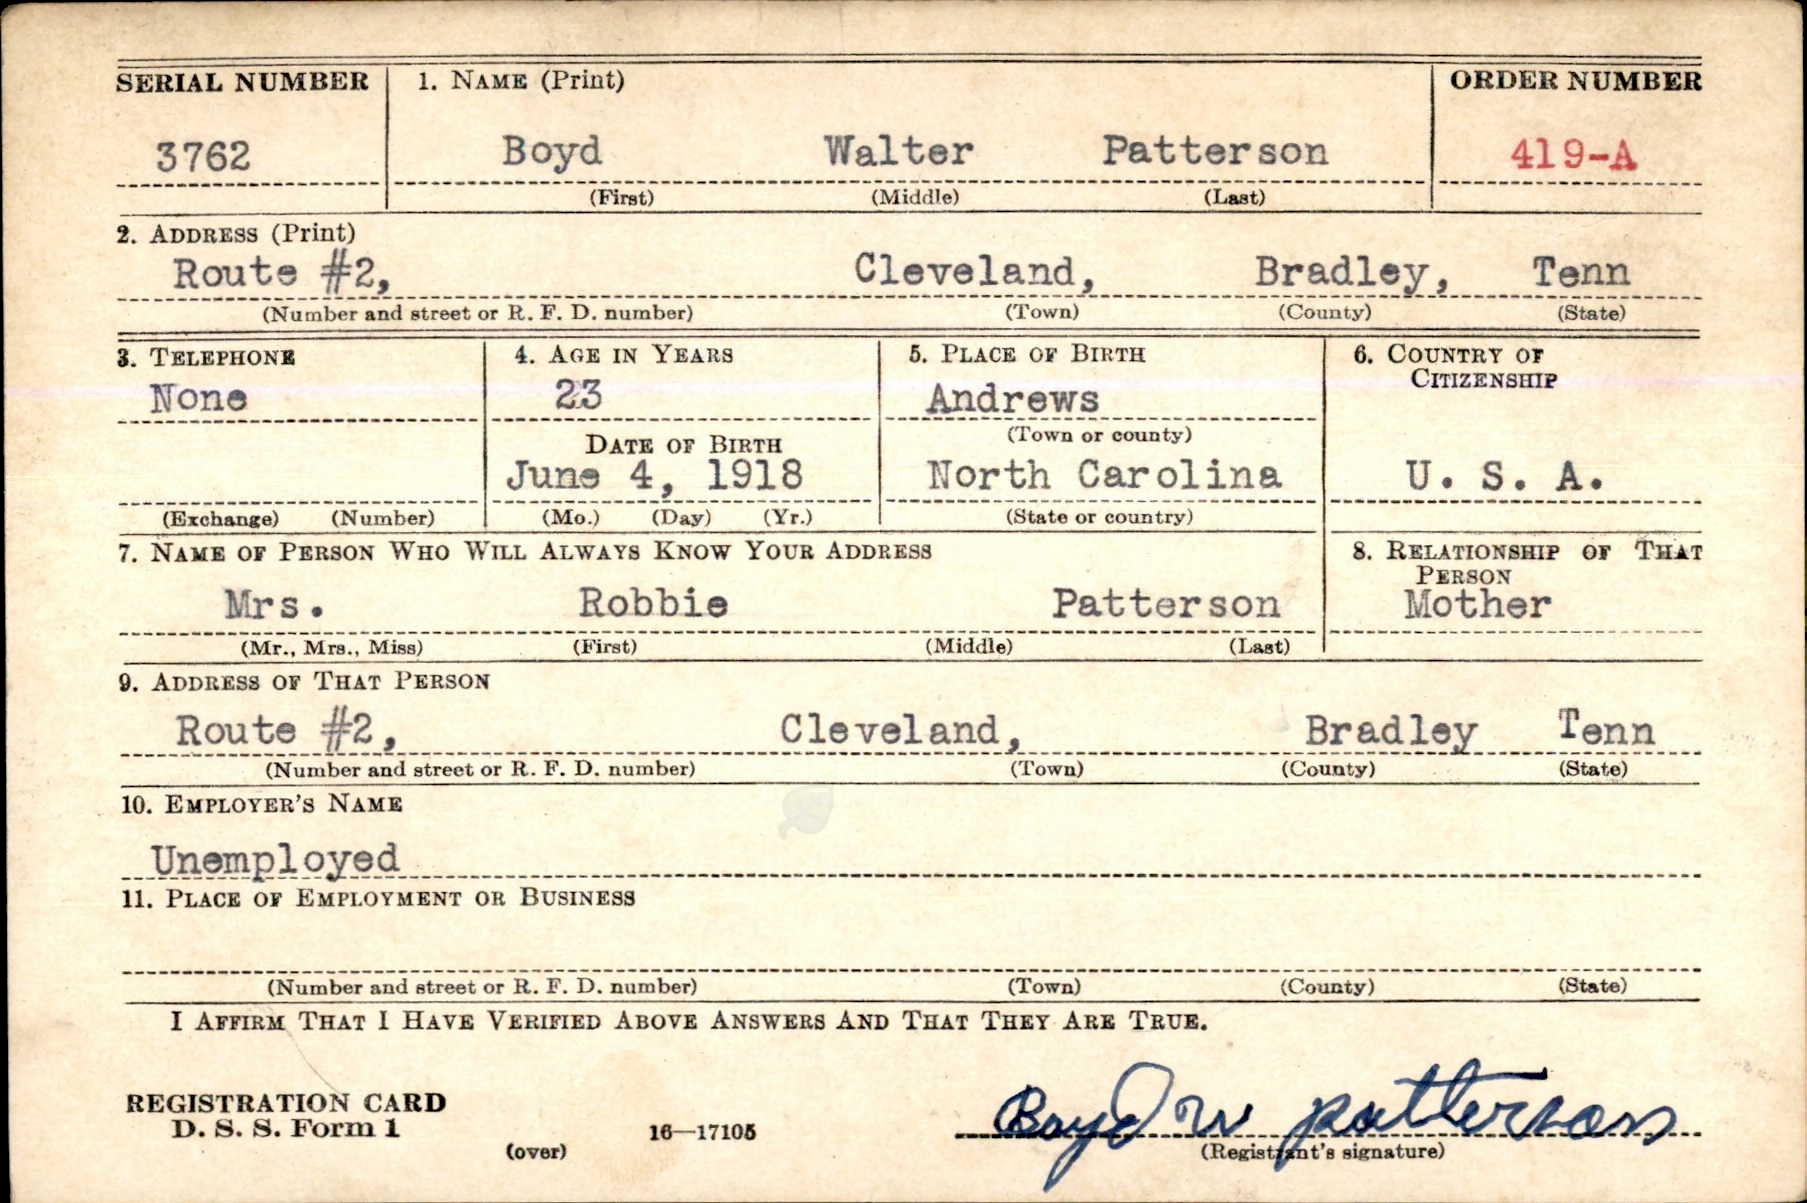 SERIAL NUMBER 1. NAME (Print) ORDER NUMBER
3762 Boyd Walter Patterson 419-A
(First) (Middle) (Last)
2. ADDRESS (Print)
Route #2, Cleveland, Bradley, Tenn
(Number and street or R. F. D. number) (Town) (County) (State)
3. TELEPHONE 4. AGE IN YEARS 5. PLACE OF BIRTH 6. COUNTRY OF
CITIZENSHIP
None 23 Andrews
(Town or county)
DATE OF BIRTH
June 4, 1918 North Carolina U. S. A.
(Exchange) (Number) (Mo.) (Day) (Yr.) (State or country)
7. NAME OF PERSON WHO WILL ALWAYS KNOW YOUR ADDRESS 8. RELATIONSHIP OF THAT
PERSON
Mrs. Robbie Patterson Mother
(Mr., Mrs., Miss) (First) (Middle) (Last)
9. ADDRESS OF THAT PERSON
Route #2, Cleveland, Bradley Tenn
(Number and street or R. F. D. number) (Town) (County) (State)
10. EMPLOYER'S NAME
Unemployed
11. PLACE OF EMPLOYMENT OR BUSINESS
(Number and street or R. F. D. number) (Town) (County) (State)
I AFFIRM THAT I HAVE VERIFIED ABOVE ANSWERS AND THAT THEY ARE TRUE.
REGISTRATION CARD
D. S. S. Form 1 16—17105 Boyd W Patterson
(over) (Registrant's signature)